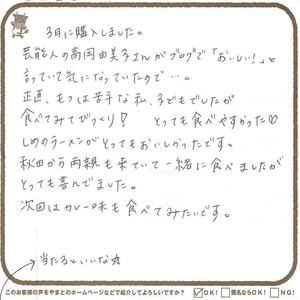 3月に購入しました。
芸能人の高岡由美子さんがブログで「おいしい!」と
言っていて気になっていたので…。
正直、もつは苦手な私、子どもでしたが
食べてみてびっくり! とっても食べやすかった♡
しめのラーメンがとってもおいしかったです。
秋田から両親も来ていて一緒に食べましたが
とっても喜んでました。
次回はカレー味も食べてみたいです。
→当たるといいな☆
このお客様の声をやまとのホームページなどで紹介してよろしいですか? ☑OK! □匿名ならOK! □NG!